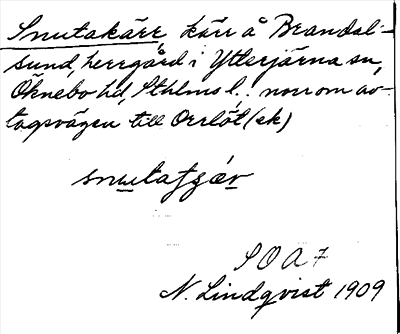 Snutakärr kärr å Brandal-
sund, herrgård i Ytterjärna sn,
Öknebo hd, Sthlms l.. norr om av-
tagsvägen till Orrlöt (ek)
snutafzær
SOA 7
N. Lindqvist 1909